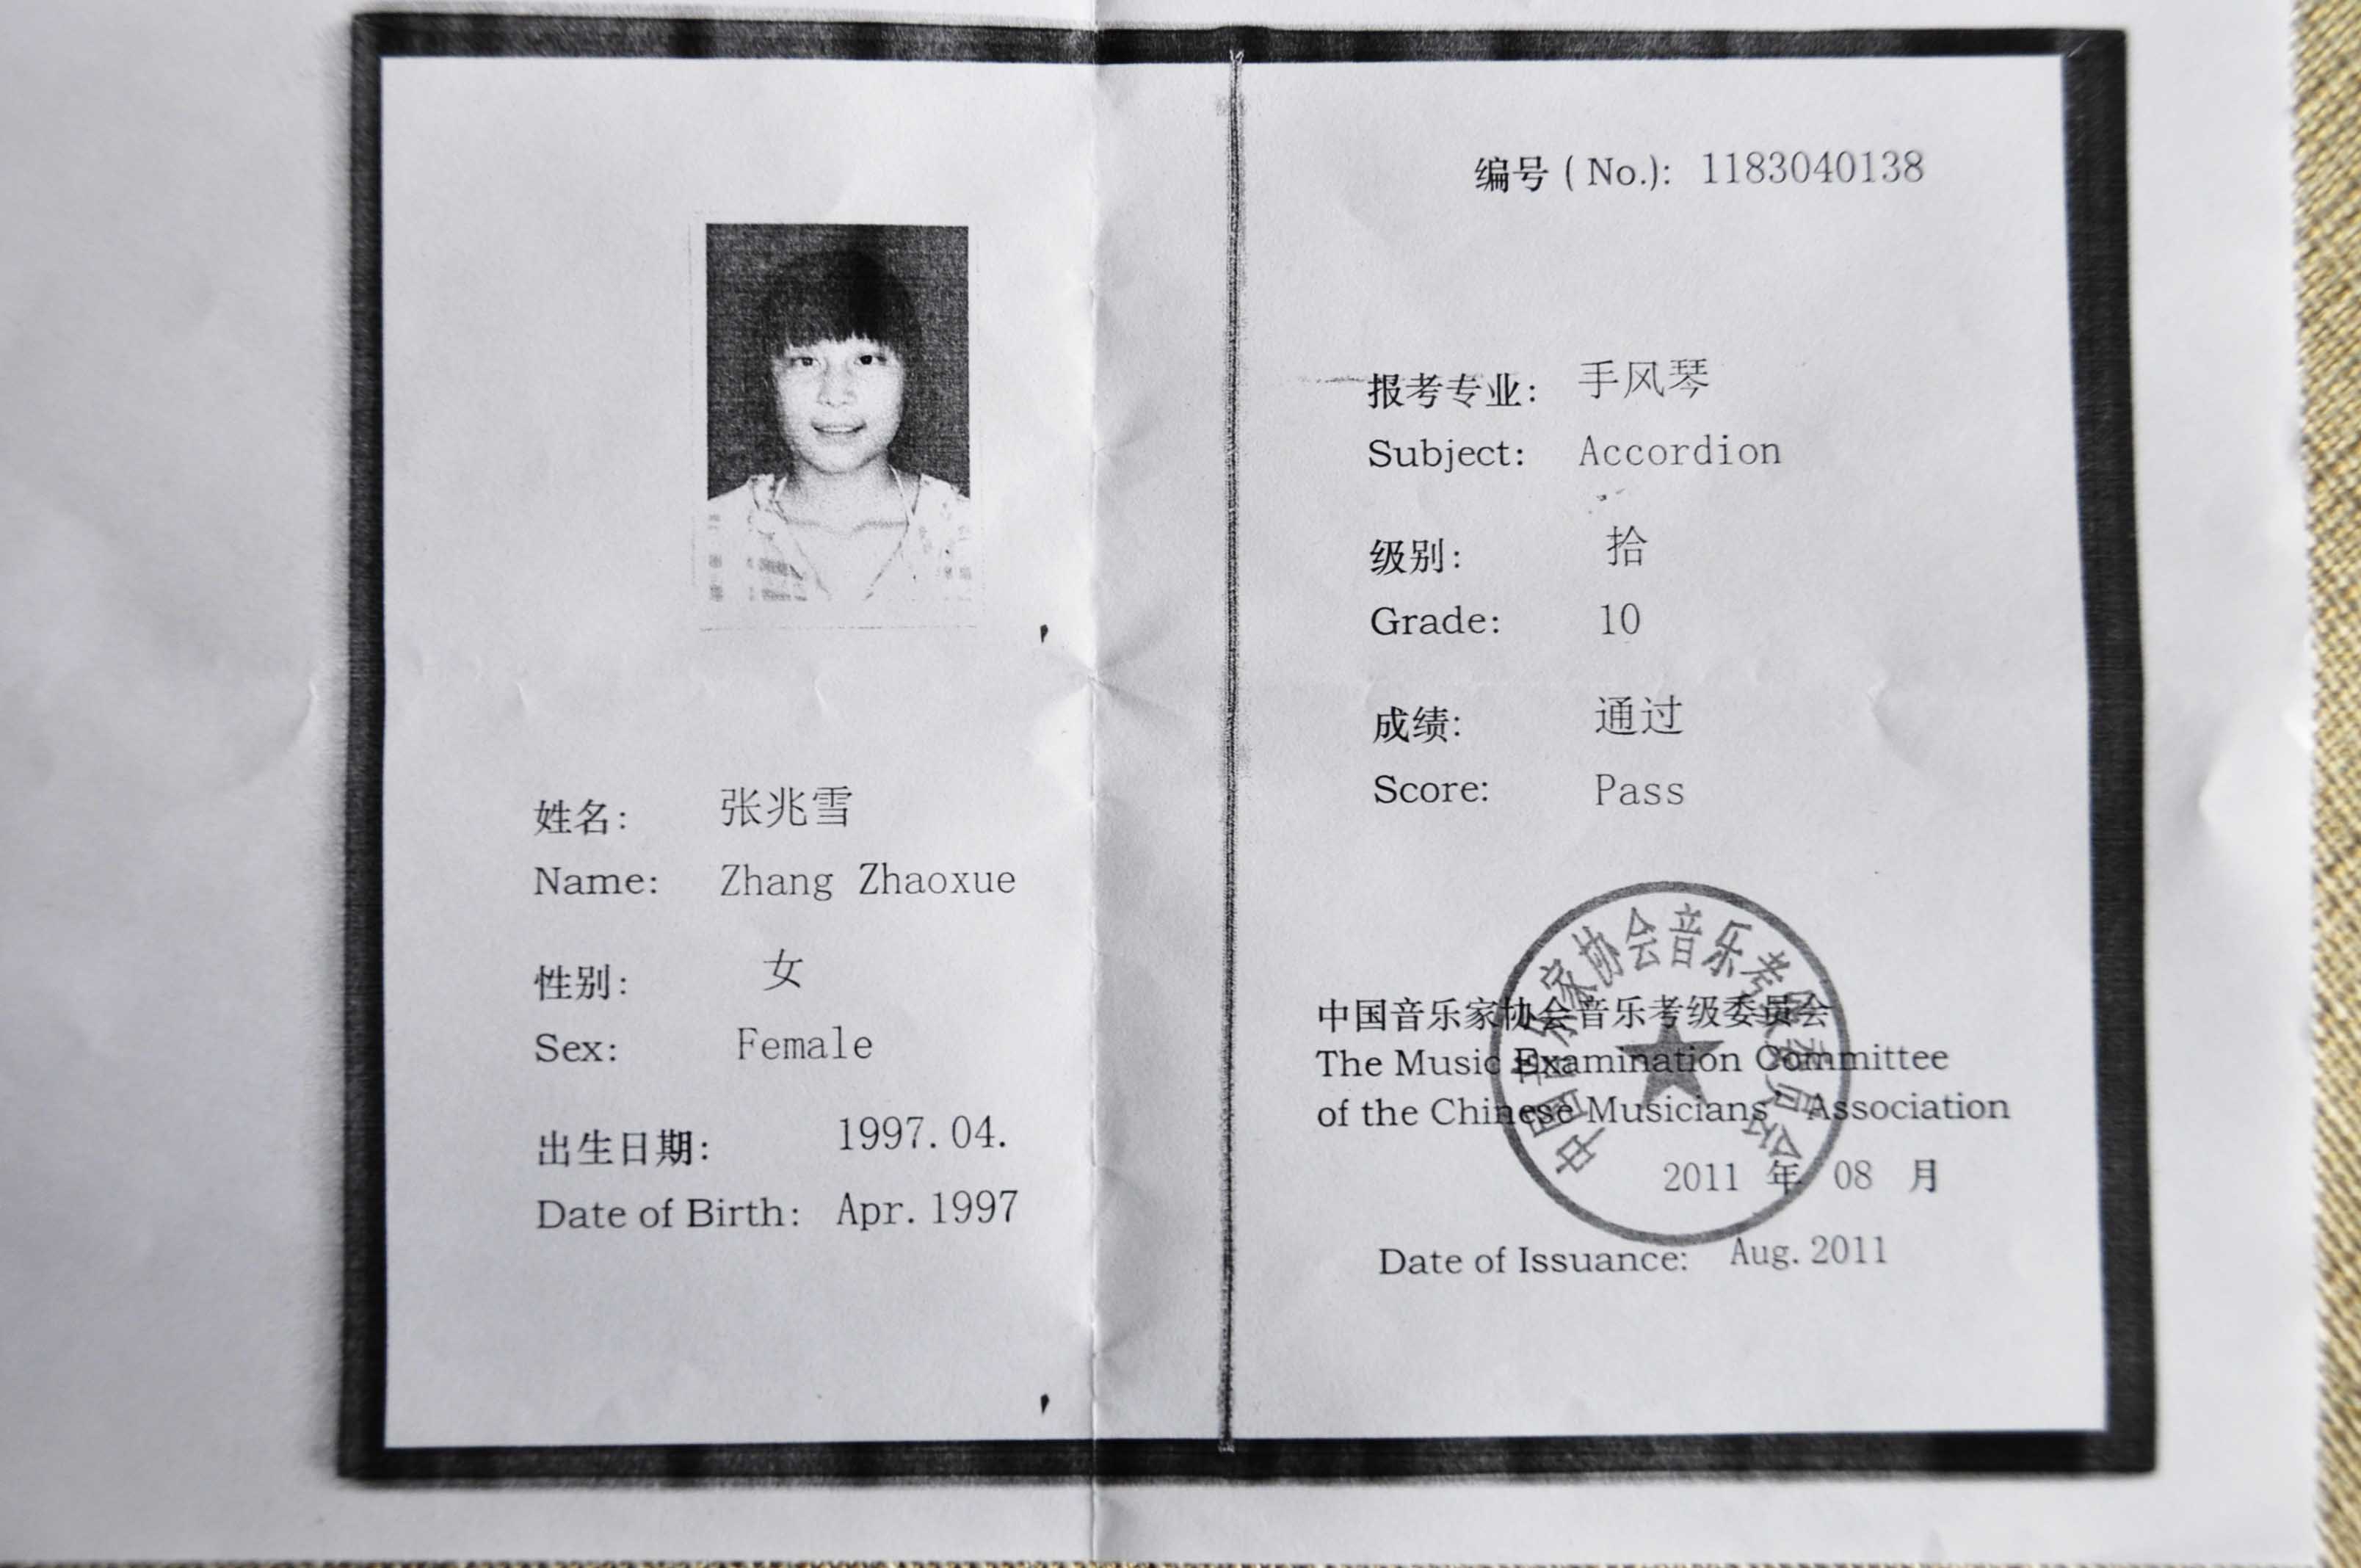 姓名: 张兆雪
Name: Zhang Zhaoxue
性别: 女
Sex: Female
出生日期: 1997.04.
Date of Birth: Apr. 1997
编号 ( No.): 1183040138
报考专业: 手风琴
Subject: Accordion
级别: 拾
Grade: 10
成绩: 通过
Score: Pass
中国音乐家协会音乐考级委员会
The Music Examination Committee
of the Chinese Musicians' Association
2011 年 08 月
Date of Issuance: Aug. 2011
中国音乐家协会音乐考级委员会